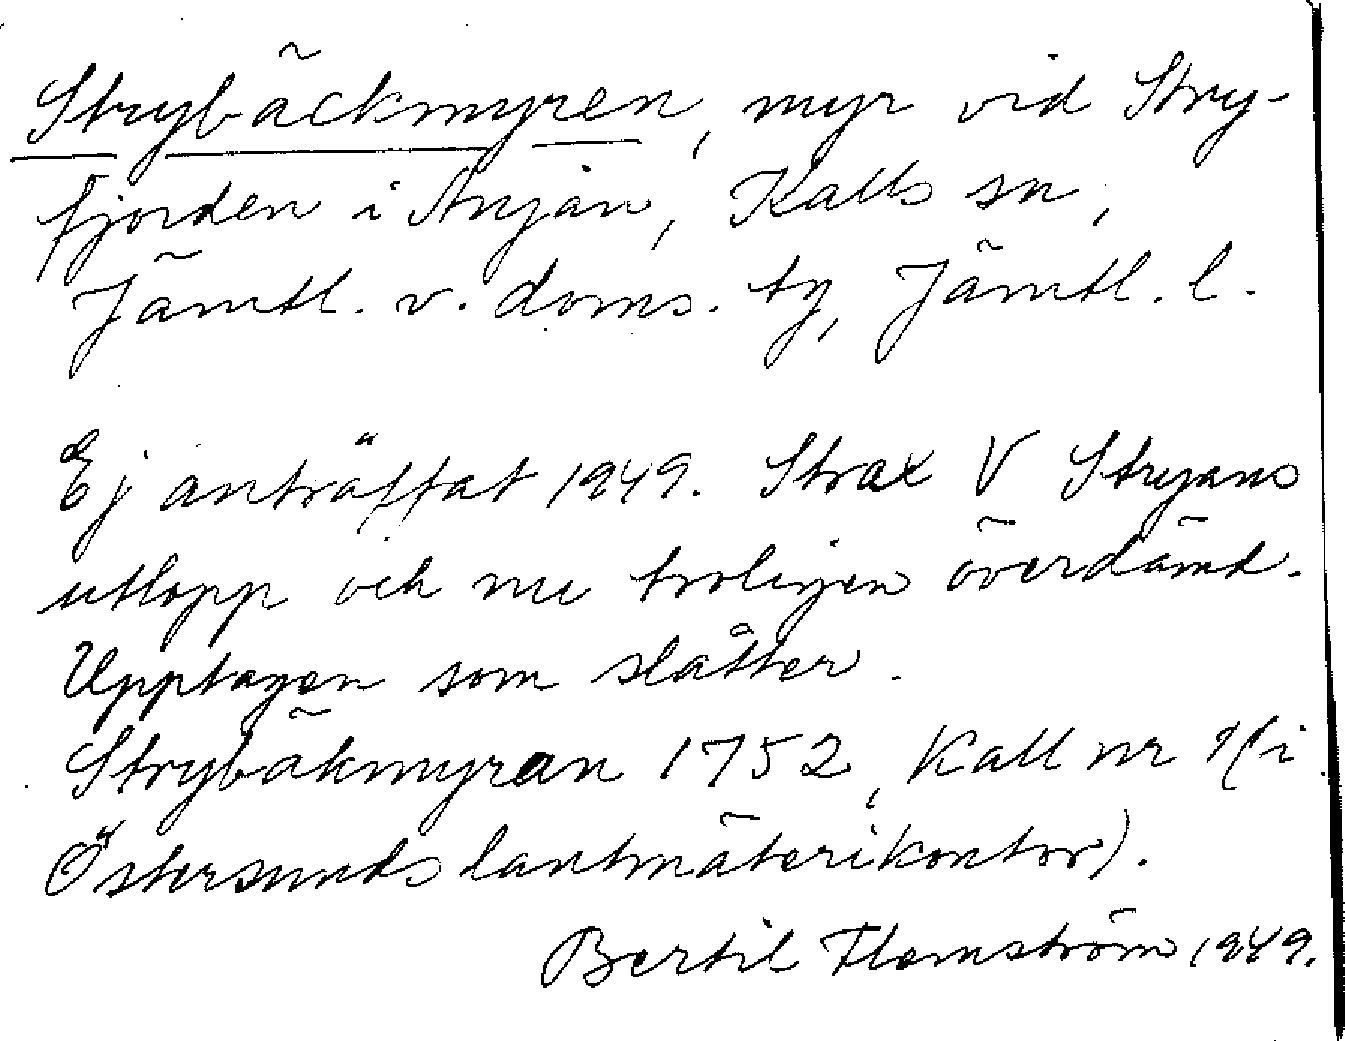 Strybäckmyren, myr vid Stry-
fjorden i Anjan, Kalls sn,
Jämtl. v. doms. tg, Jämtl. l.
Ej anträffat 1949. Strax V Stryans
utlopp och nu troligen överdämd.
Upptagen som slåtter.
Strybäkmyran 1752, Kall nr 2 (i
Östersunds lantmäterikontor).
Bertil Flemström 1949.